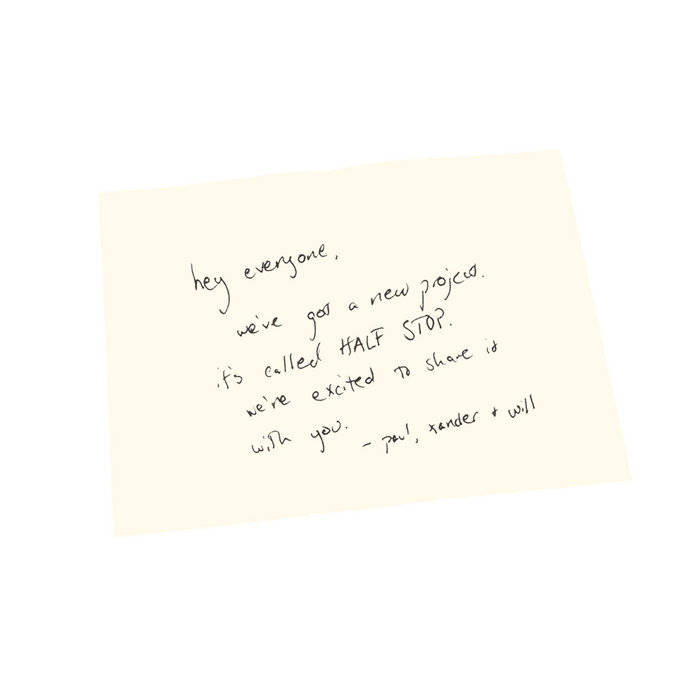 hey everyone,
we've got a new project.
it's called HALF STOP.
we're excited to share it
with you.
- paul, xander + will